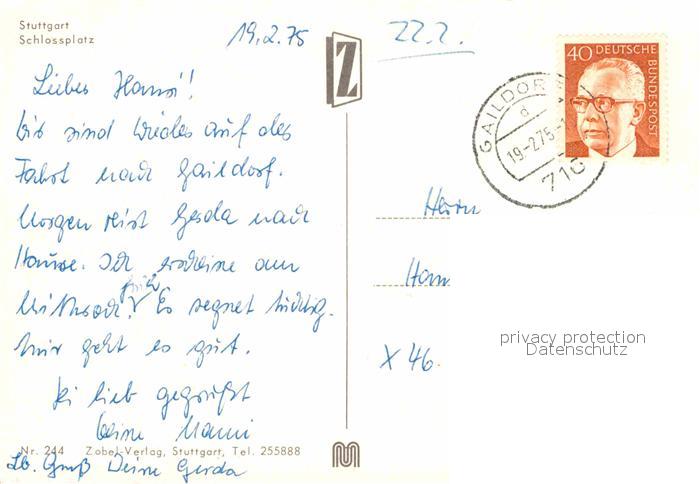 Stuttgart
Schlossplatz
19.2.75
22.2.
Z
40 DEUTSCHE BUNDESPOST
GAILDORF
d
19-2.75-
710
Lieber Hansi!
Wir sind wieder auf der
Fahrt nach Gaildorf.
Morgen reist Gerda nach
Hause. Ich erscheine am
früh
Mittwoch. Es regnet tüchtig.
Mir geht es gut.
Sei lieb gegrüßt
Deine Manni
Lb. Gruß Deine Gerda
Herrn
Han
X 46.
privacy protection
Datenschutz
Nr. 244 Zobel-Verlag, Stuttgart, Tel. 255888